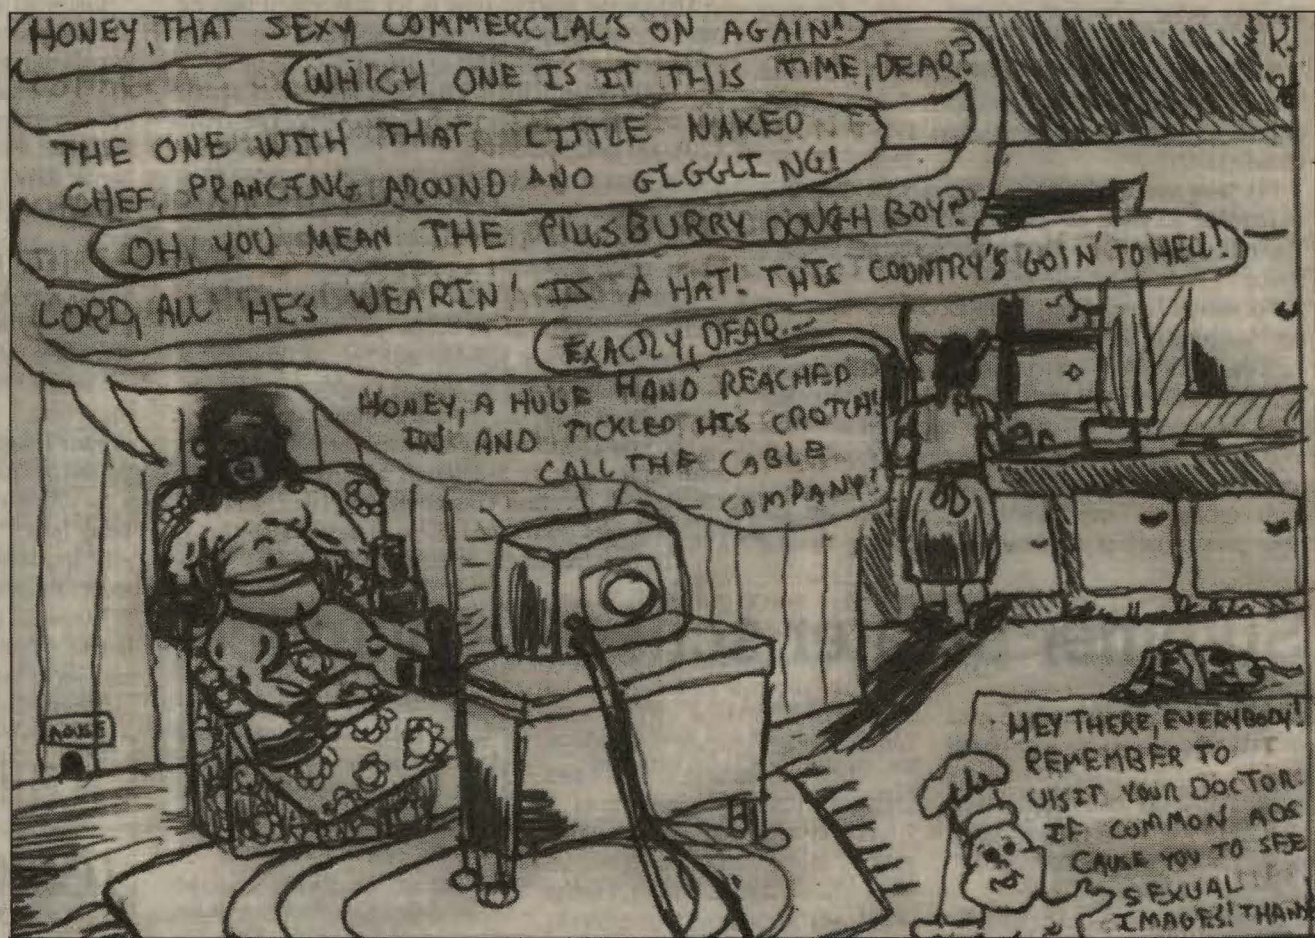 HONEY, THAT SEXY COMMERCIAL'S ON AGAIN!
WHICH ONE IS IT THIS TIME, DEAR?
THE ONE WITH THAT LITTLE NAKED
CHEF, PRANCING AROUND AND GIGGLING!
OH, YOU MEAN THE PILLSBURRY DOUGH BOY?
LORD, ALL HE'S WEARIN' IS A HAT! THIS COUNTRY'S GOIN' TO HELL!
EXACTLY, DEAR...
HONEY, A HUGE HAND REACHED
IN AND TICKLED HIS CROTCH!
CALL THE CABLE
COMPANY!
HEY THERE, EVERYBODY!
REMEMBER TO
VISIT YOUR DOCTOR
IF COMMON ADS
CAUSE YOU TO SEE
SEXUAL
IMAGES! THANKS